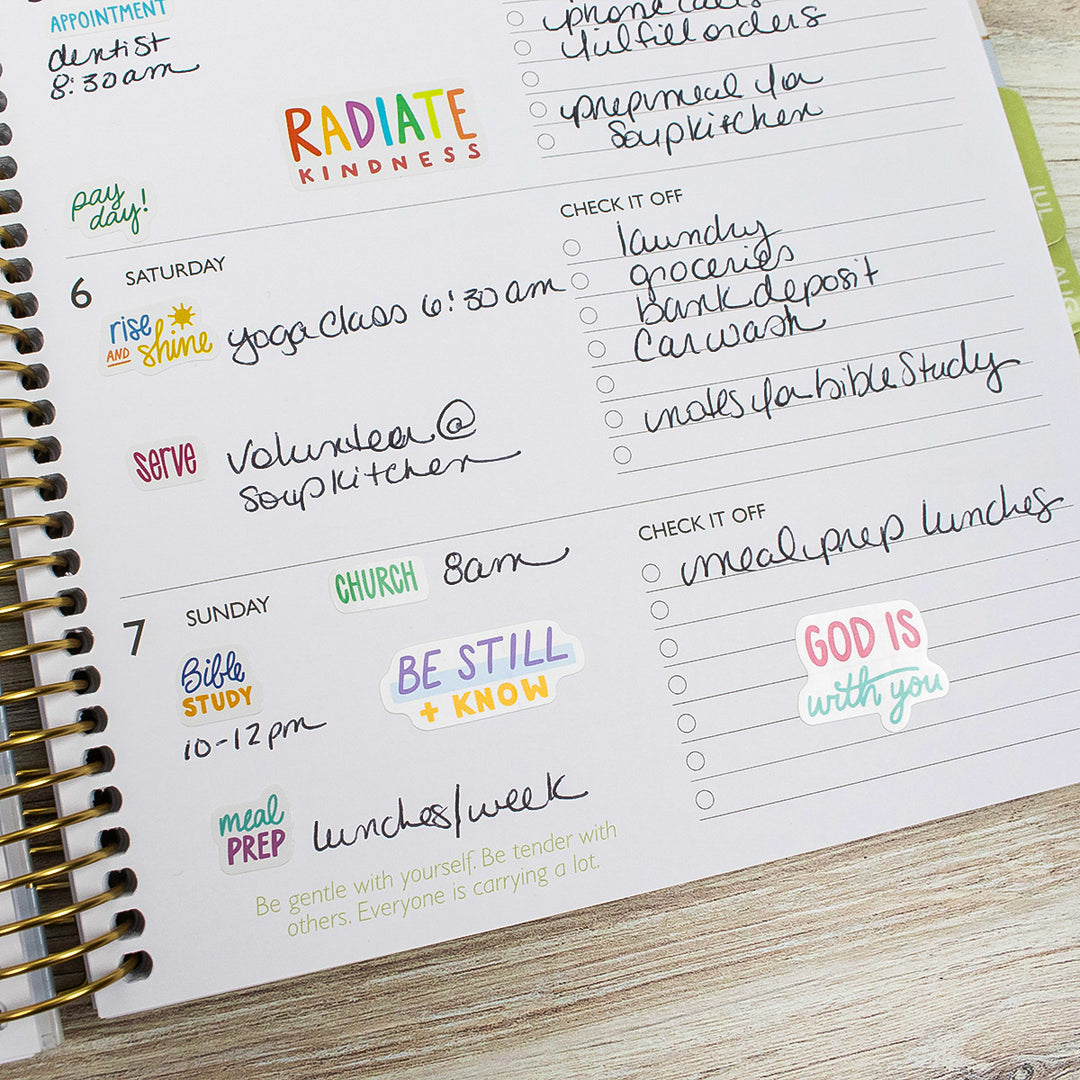 APPOINTMENT
dentist
8:30am
phone calls
fulfill orders
prep meal for
Soup kitchen
RADIATE
KINDNESS
pay
day!
6 SATURDAY
rise
AND shine
yoga class 6:30am
serve
volunteer @
soup kitchen
CHECK IT OFF
laundry
groceries
bank deposit
Car wash
notes for bible Study
7 SUNDAY
CHURCH 8am
Bible
STUDY
10-12pm
BE STILL
+ KNOW
meal
PREP
lunches/week
CHECK IT OFF
meal prep lunches
GOD IS
with you
Be gentle with yourself. Be tender with
others. Everyone is carrying a lot.
JUL
AUG